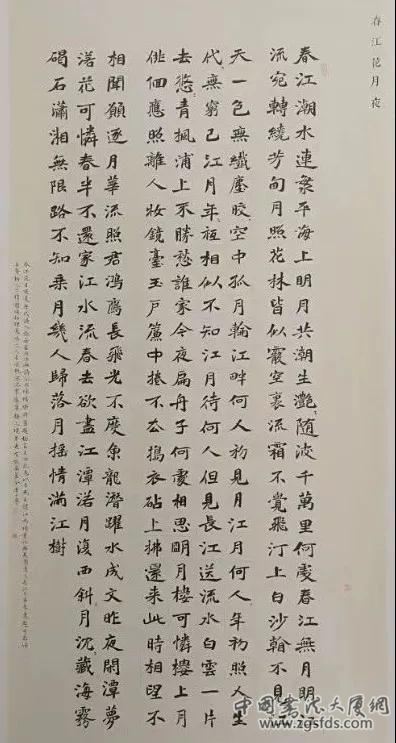 春江花月夜
春江潮水連海平海上明月共潮生灩隨波千萬里何處春江無月明江
流宛轉繞芳甸月照花林皆似霰空裏流霜不覺飛汀上白沙看不見江
天一色無纖塵皎空中孤月輪江畔何人初見月江月何人年初照人生
代無窮已江月年祗相似不知江月待何人但見長江送流水白雲一片
去悠青楓浦上不勝愁誰家今夜扁舟子何處相思明月樓可憐樓上月
俳佪應照離人妝鏡臺玉戶簾中捲不去搗衣砧上拂還來此時相望不
相聞願逐月華流照君鴻雁長飛光不度魚龍潛躍水成文昨夜閑潭夢
落花可憐春半不還家江水流春去欲盡江潭落月復西斜月沉藏海霧
碣石瀟湘無限路不知乘月幾人歸落月搖情滿江樹
中国书法大厦网
www.zgsfds.com